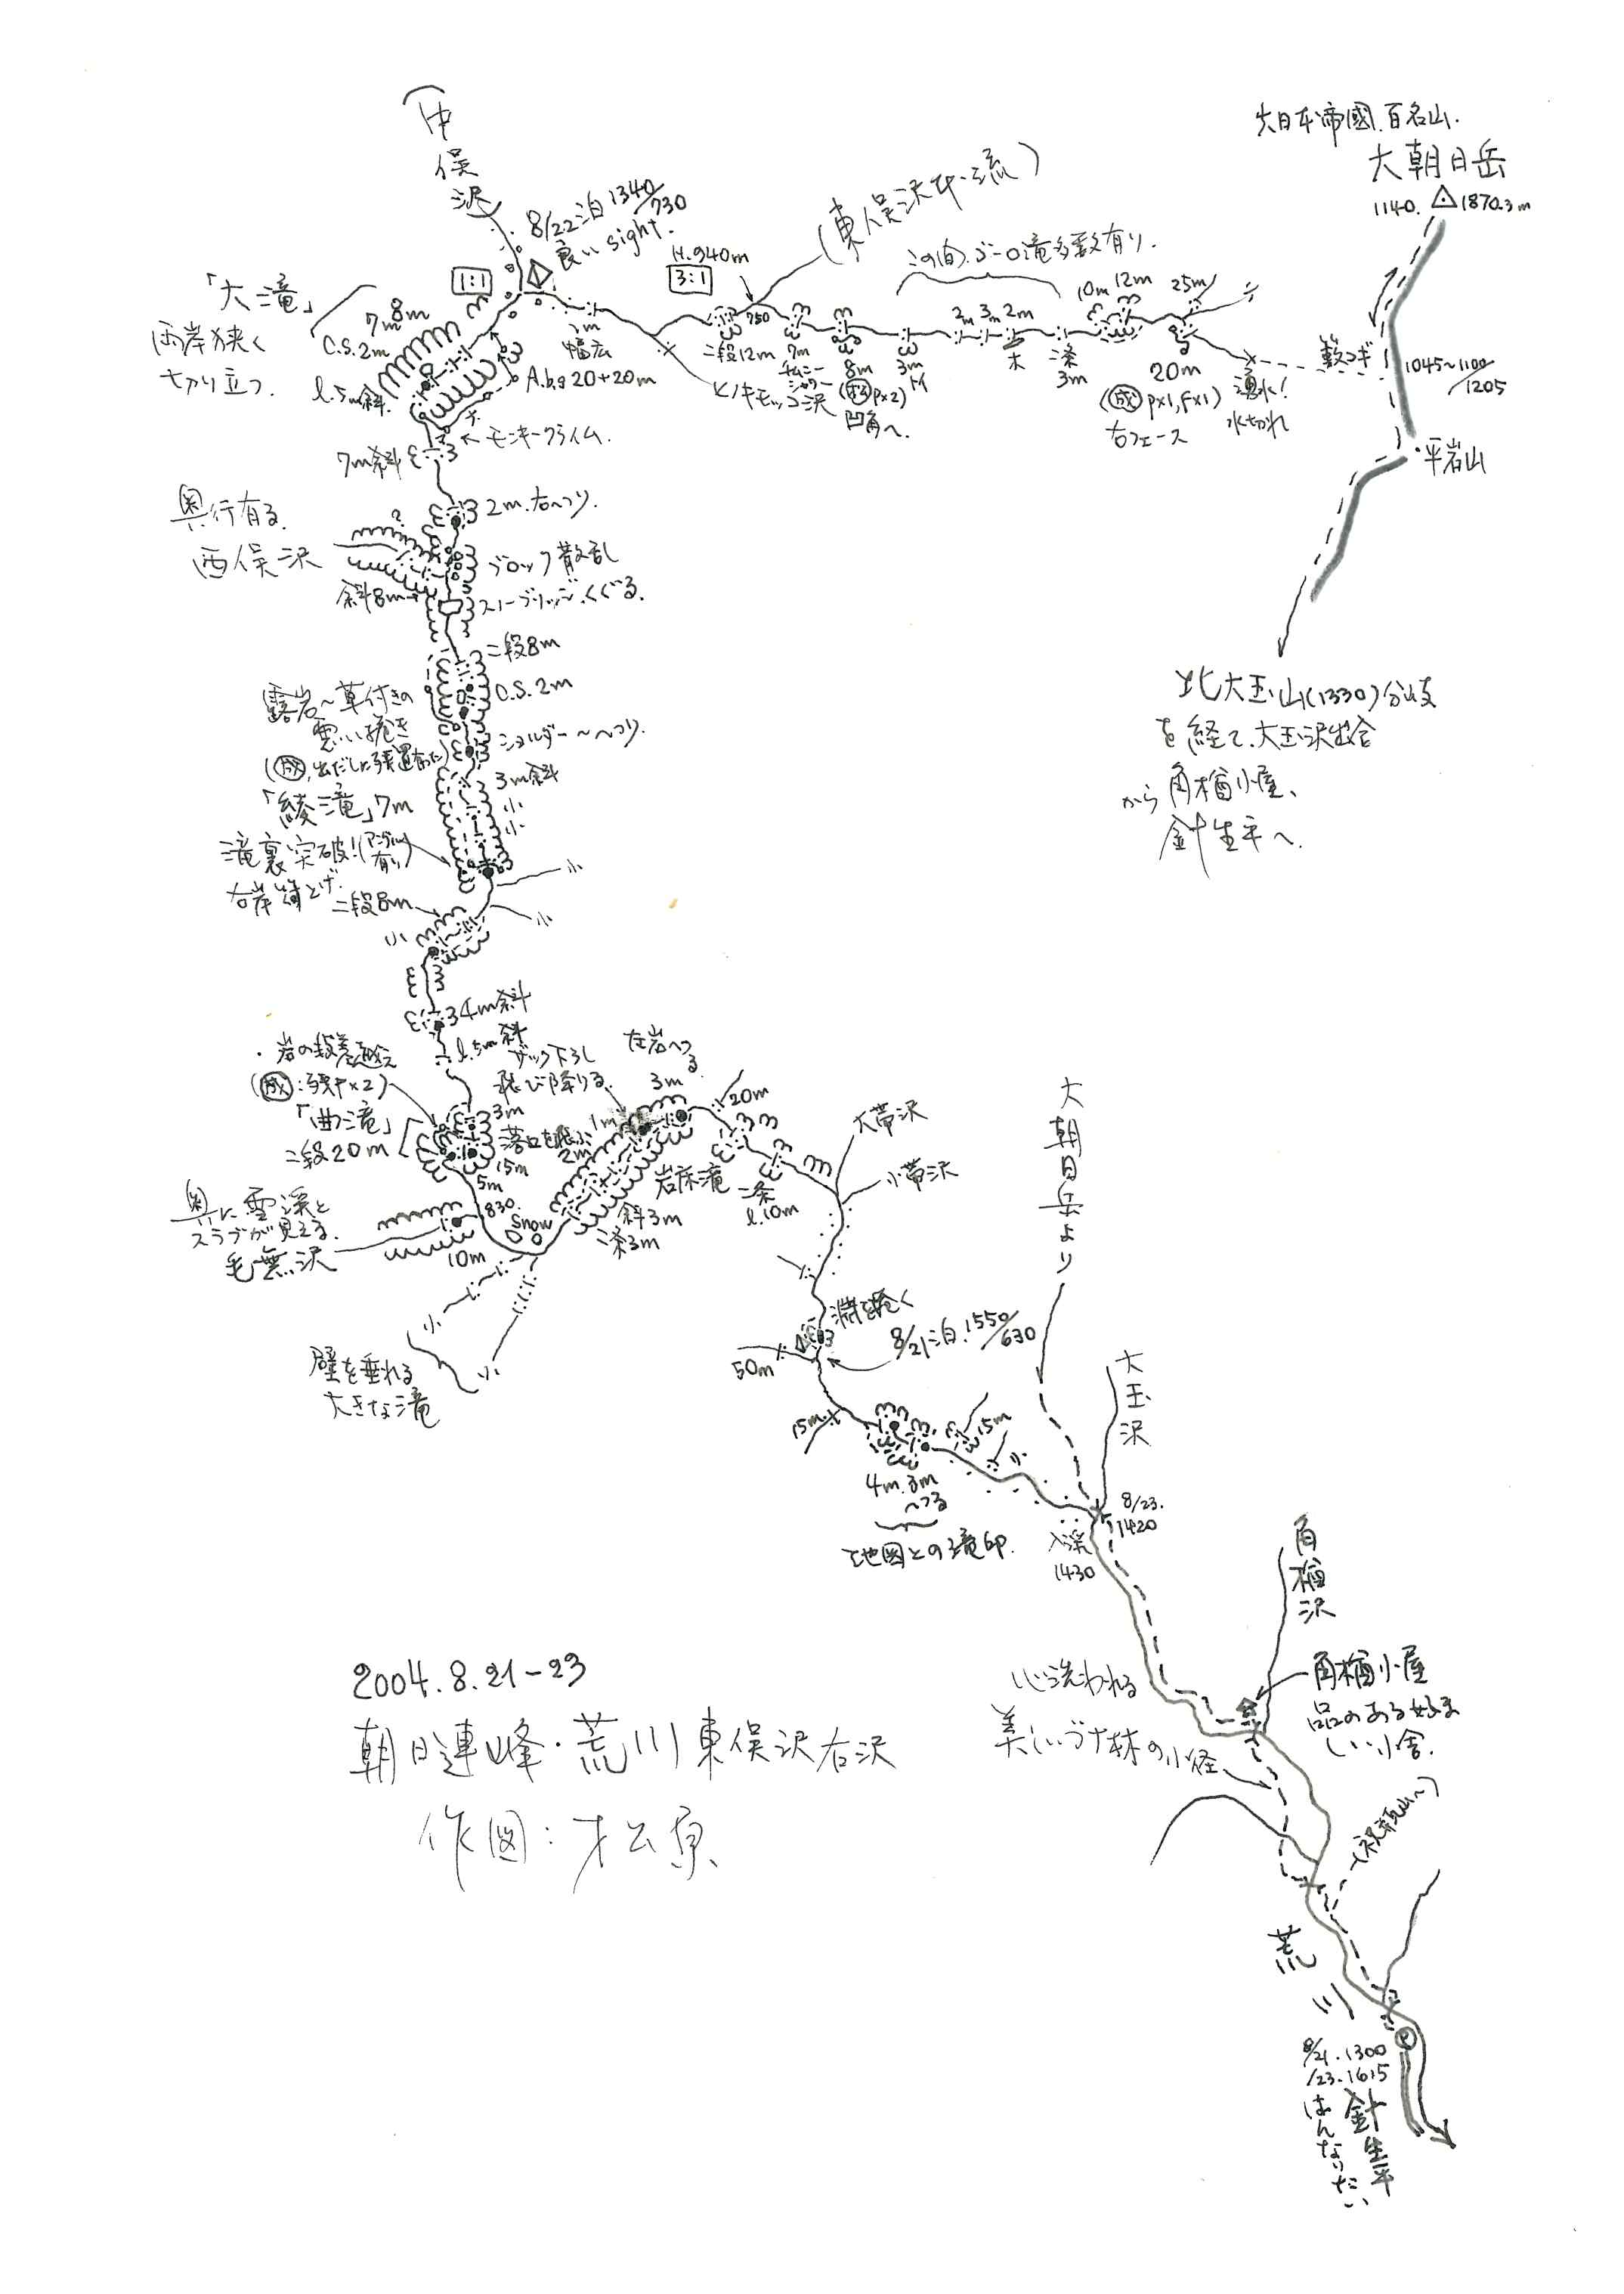 中俣沢
8/22泊 1340/730
良い sight.
(東俣沢本流)
大日本帝國百名山.
大朝日岳
1140. 1870.3m
「大滝」
両岸狭く
切り立つ.
8m
7m
C.S.2m
l.5m斜.
1:1
H.940m
3:1
750
この向ゴーロ滝多数有り.
2m 3m 2m
10m 12m 25m
2m
幅広
二段12m
7m
チムニー
シャワー
8m
凹角へ.
3m
トイ
木
二条
3m
20m
(成 P×1, F×1)
右フェース
湧水!
水切れ
藪コギ
1045~1100/1205
・平岩山
ヒノキモッコ沢
A.b.g 20+20m
← モンキークライム.
7m斜
2m.右へつり.
奥行有る.
西俣沢
?
ブロック散乱
斜8m→
スノーブリッジ.くぐる.
二段8m
C.S.2m
露岩~草付きの
悪い捲き
ショルダー~へつり.
3m斜
「綾滝」7m
滝裏突破!
右岸
二段8m
小
小
小
小
小
北大玉山(1330)分岐
を経て、大玉沢出合
から角楢小屋、
針生平へ.
4m斜
l.5m斜
・岩の段差越え
(成:残P×2)
「曲滝」
二段20m
3m
15m
5m
ザック下ろし
飛び降りる.
左岩へつる
3m
1m
落口を飛ぶ
2m
20m
岩床滝
斜3m
二条3m
二条
l.10m
大帯沢
小帯沢
奥に雪渓と
スラブが見える.
毛無沢
830.
Snow
10m
小
小
壁を垂れる
大きな滝
大朝日岳より
淵を捲く
8/21泊.1550/630
50m
15m
15m
小
4m.3m
へつる
地図上の滝印.
大玉沢
8/23.
1420
入渓
1430
角楢沢
角楢小屋
品のある好ま
しい小舎.
心洗われる
美しいブナ林の小径
(祝瓶山へ)
荒川
P
8/21.1300
/23.1615
針生平
はんなりたい
2004.8.21-23
朝日連峰・荒川東俣沢右沢
作図:松原